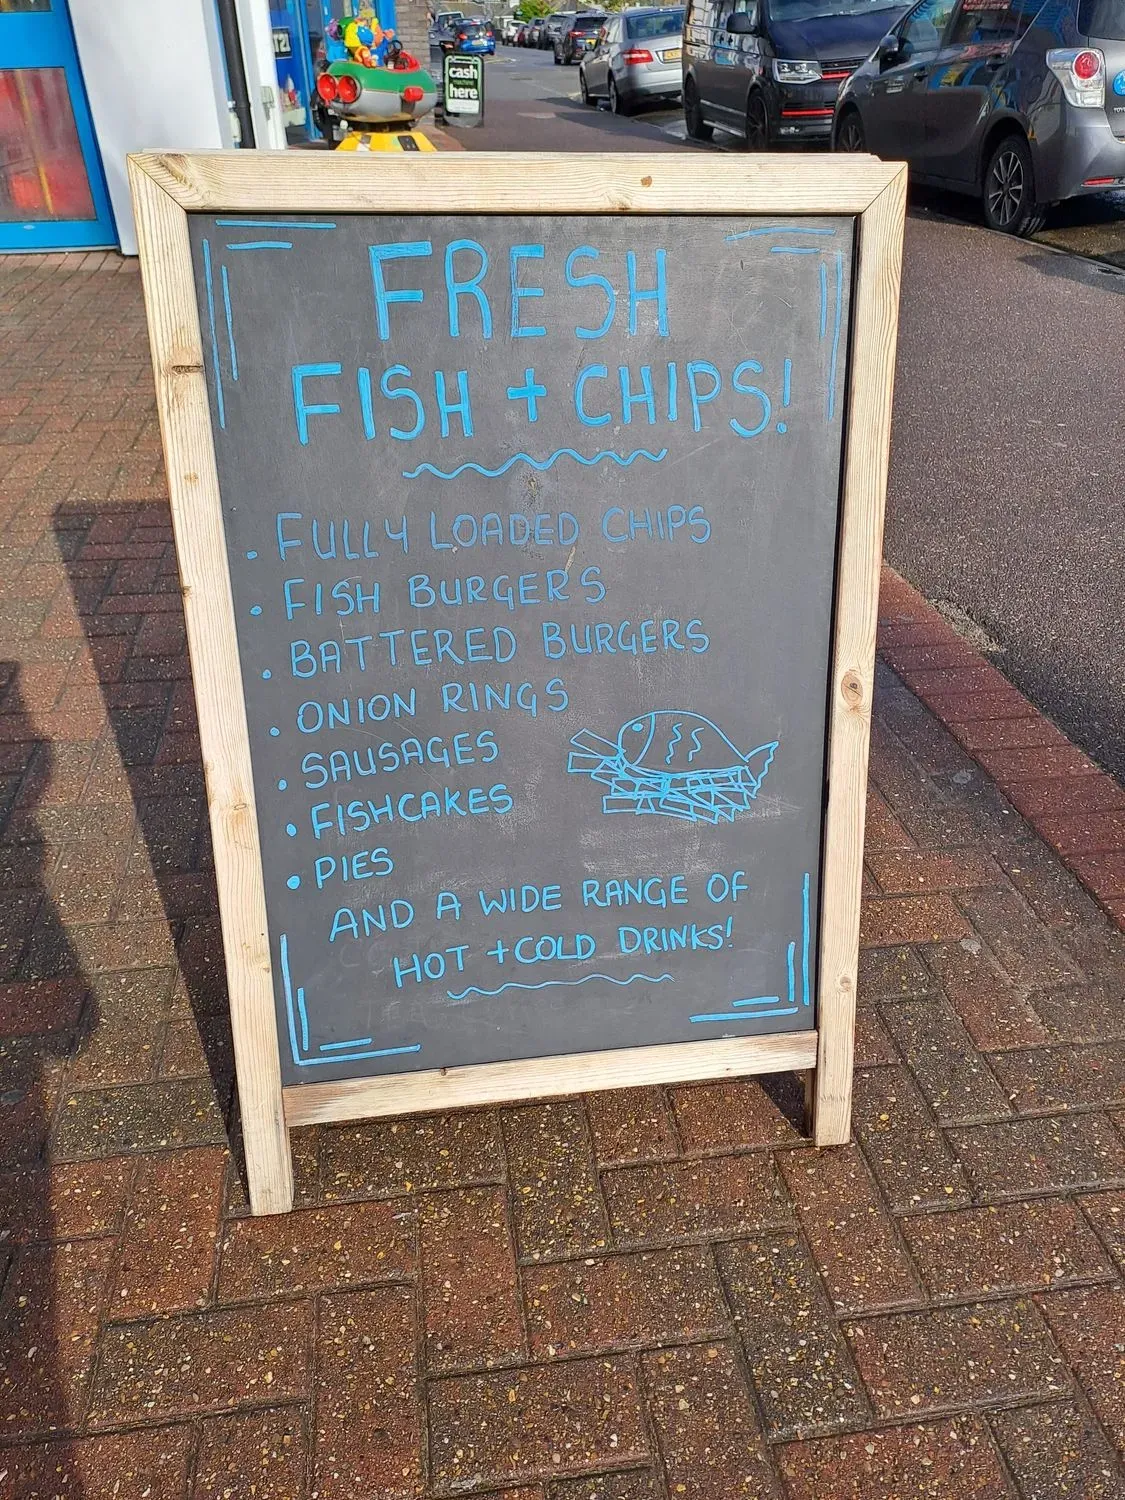 cash
here
FRESH
FISH + CHIPS!
. FULLY LOADED CHIPS
. FISH BURGERS
. BATTERED BURGERS
. ONION RINGS
. SAUSAGES
. FISHCAKES
. PIES
AND A WIDE RANGE OF
HOT + COLD DRINKS!